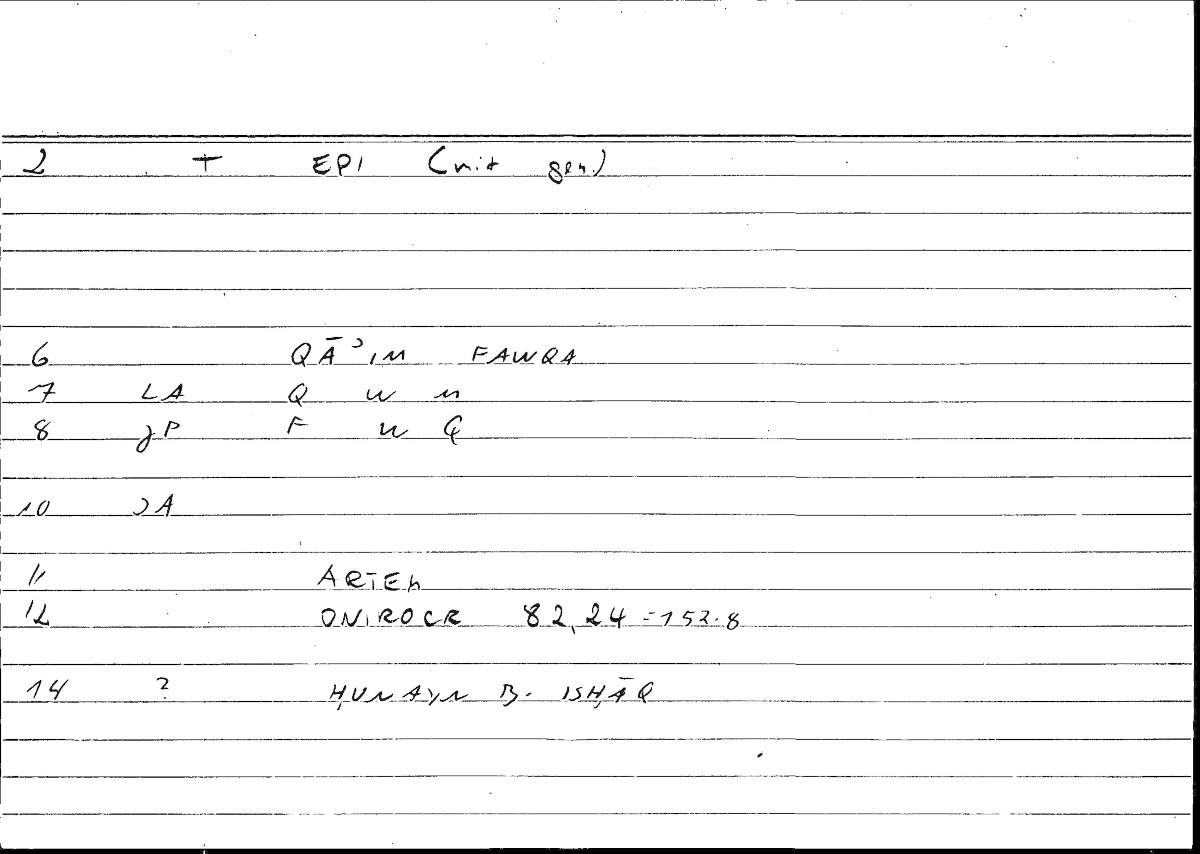 2 + EPI (mit gen.)
6 QĀʾIM FAWQA
7 LA Q W M
8 JP F W Q
10 JA
11 ARTEM
12 ONIROCR 82,24 = 152.8
14 ? ḤUNAYN B. ISḤĀQ